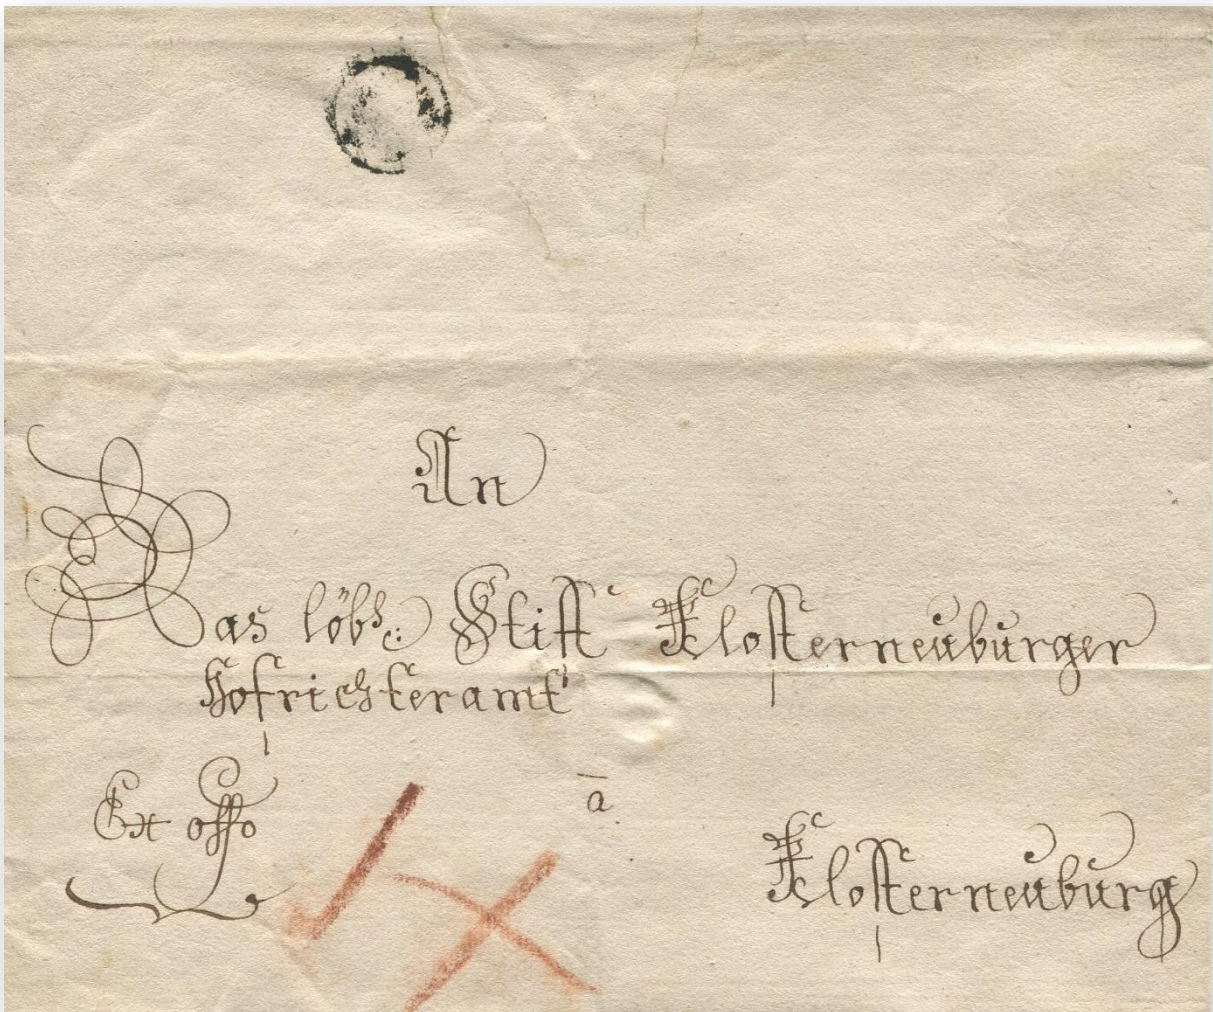 An
Das löbl: Stift Klosterneuburger
Hofrichteramt
Ex offo
a
Klosterneuburg